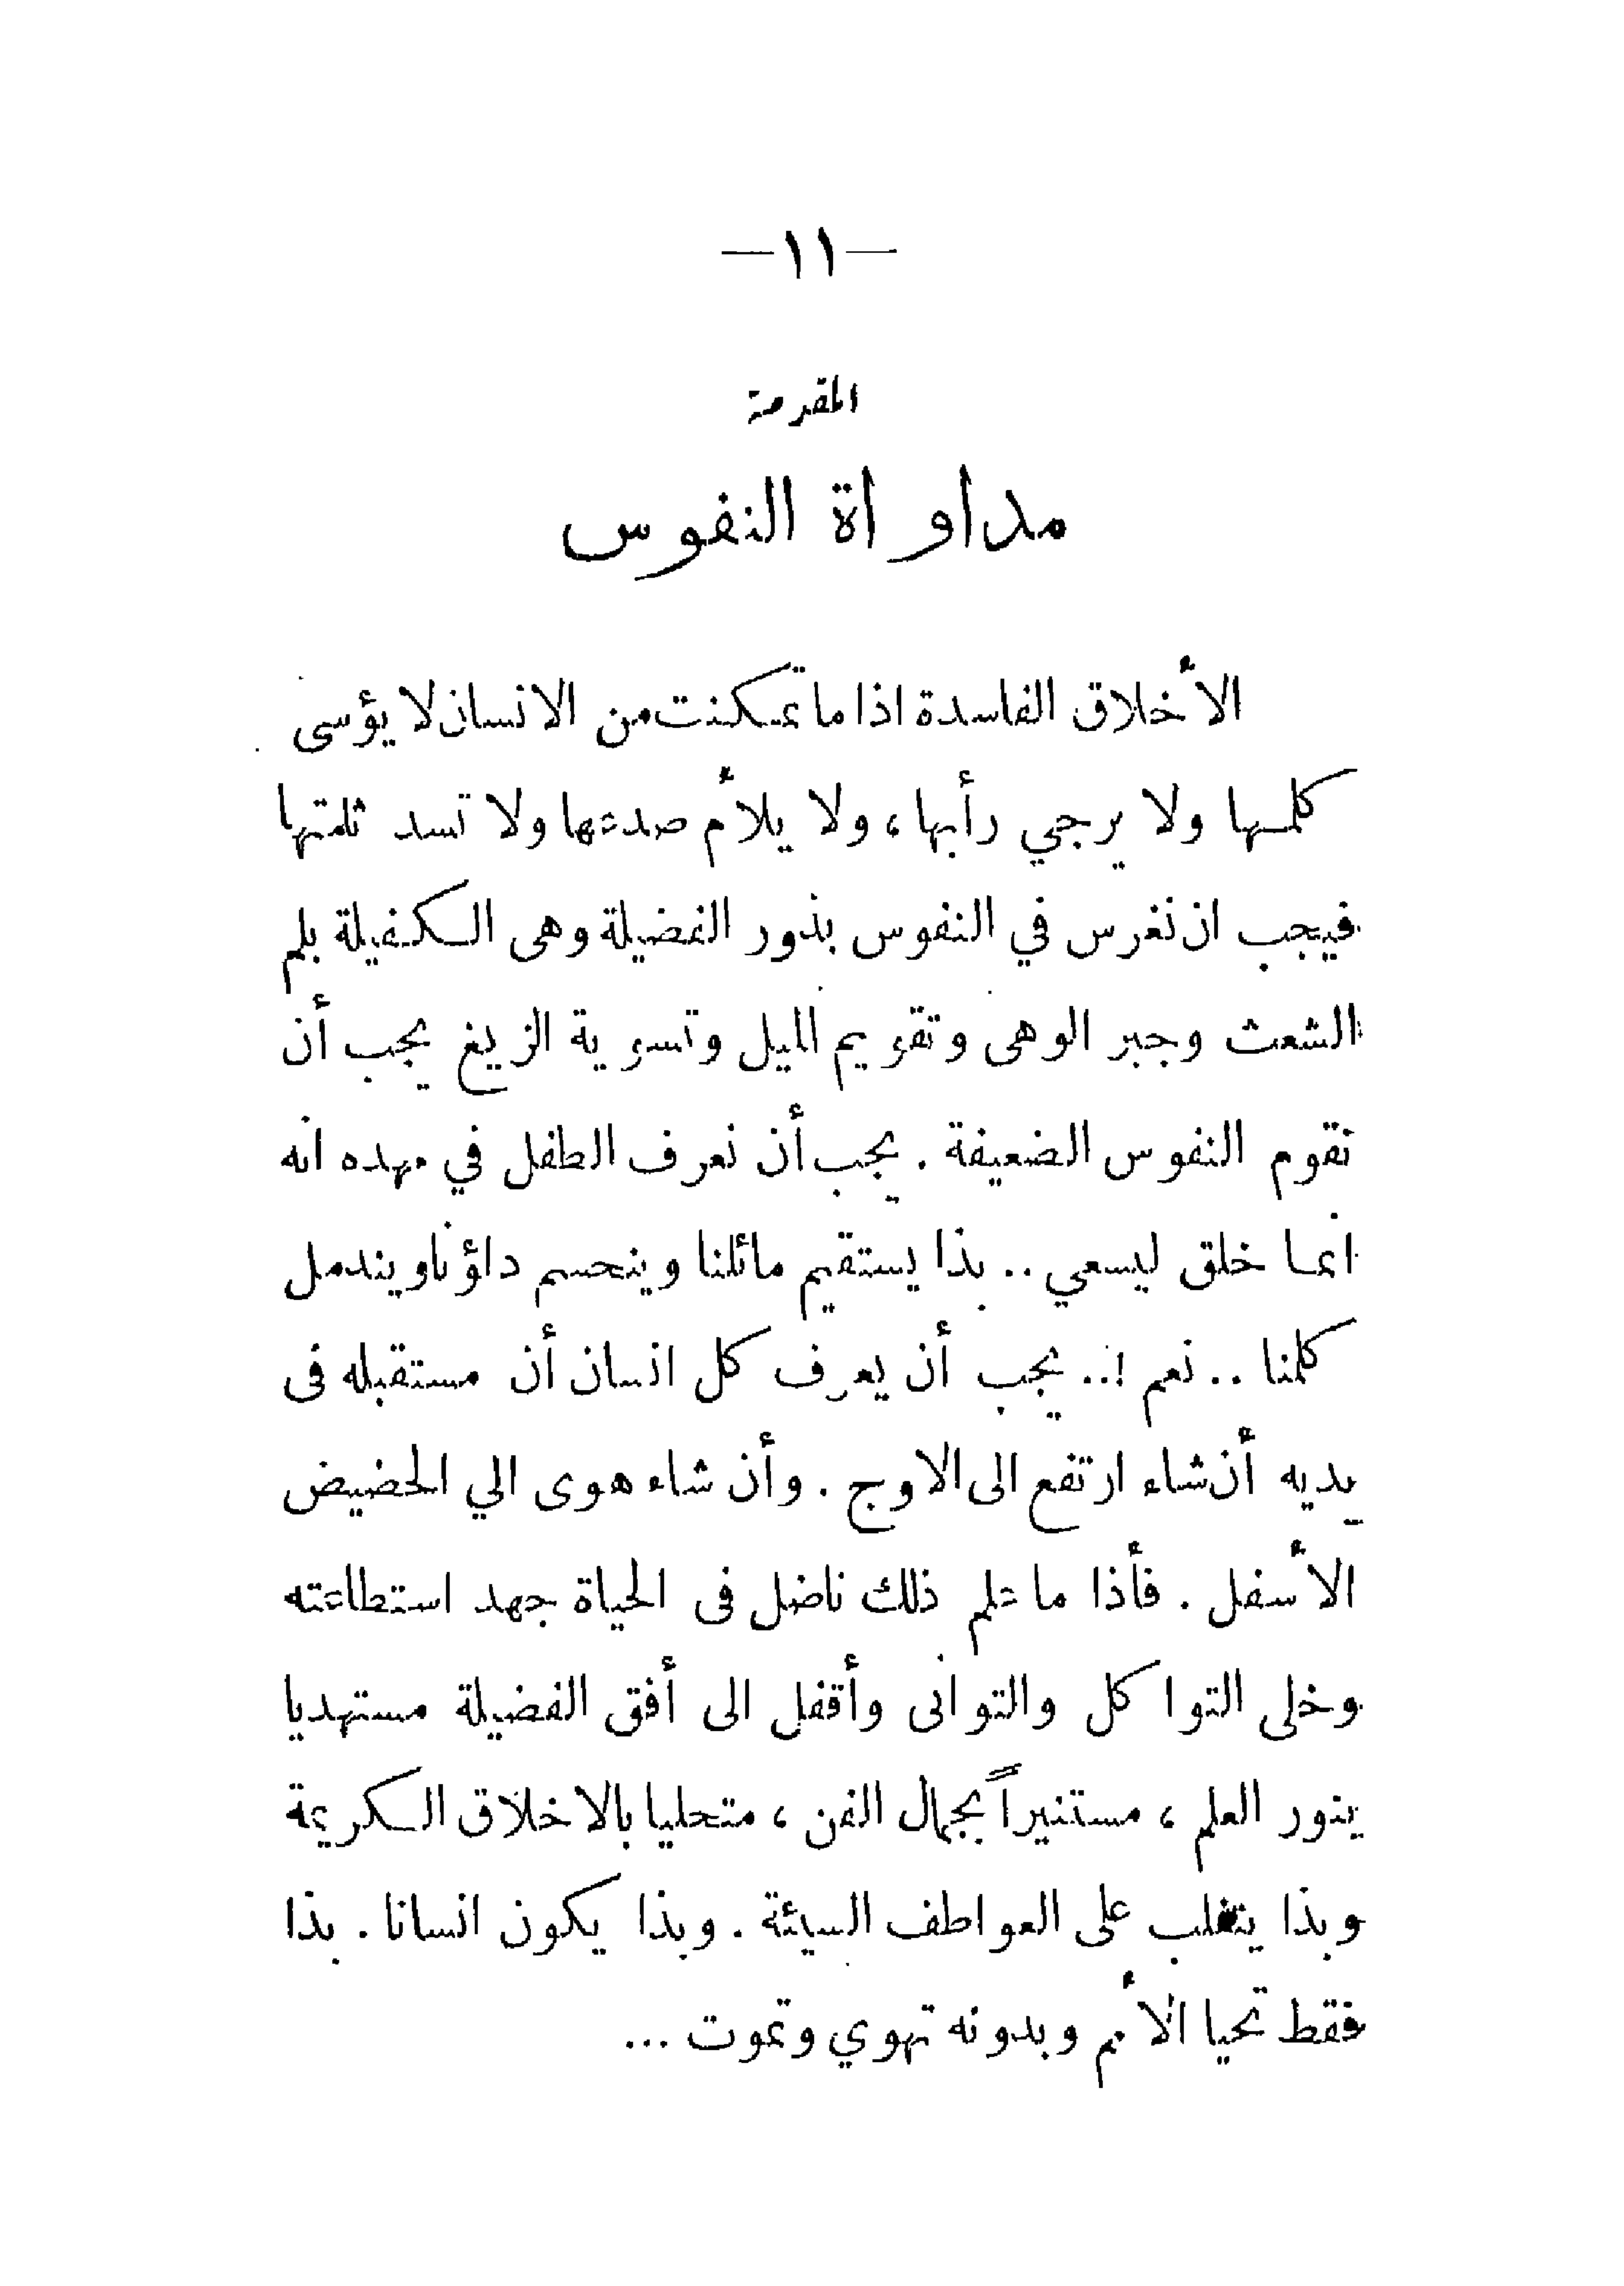 —١١—
المقدمة
مداواة النفوس
الأخلاق الفاسدة اذا ما تمكنت من الانسان لا يؤسى
كلمها ولا يرجي رأبها، ولا يلأم صدعها ولا تسد ثلمتها
فيجب ان نغرس في النفوس بذور الفضيلة وهى الكفيلة بلم
الشعث وجبر الوهى وتقويم الميل وتسوية الزيغ يجب أن
نقوم النفوس الضعيفة . يجب أن نعرف الطفل في مهده انه
انما خلق ليسعي .. بذا يستقيم مائلنا وينحسم داؤنا ويندمل
كلمنا .. نعم !.. يجب أن يعرف كل انسان أن مستقبله فى
يديه أن شاء ارتفع الى الاوج . وأن شاء هوى الي الحضيض
الأسفل . فأذا ما علم ذلك ناضل فى الحياة جهد استطاعته
وخلى التواكل والتوانى وأقفل الى أفق الفضيلة مستهديا
بنور العلم ، مستنيراً بجمال الفن ، متحليا بالاخلاق الكريمة
وبذا يتغلب على العواطف السيئة . وبذا يكون انسانا . بذا
فقط تحيا الأمم وبدونه تهوي وتموت ...